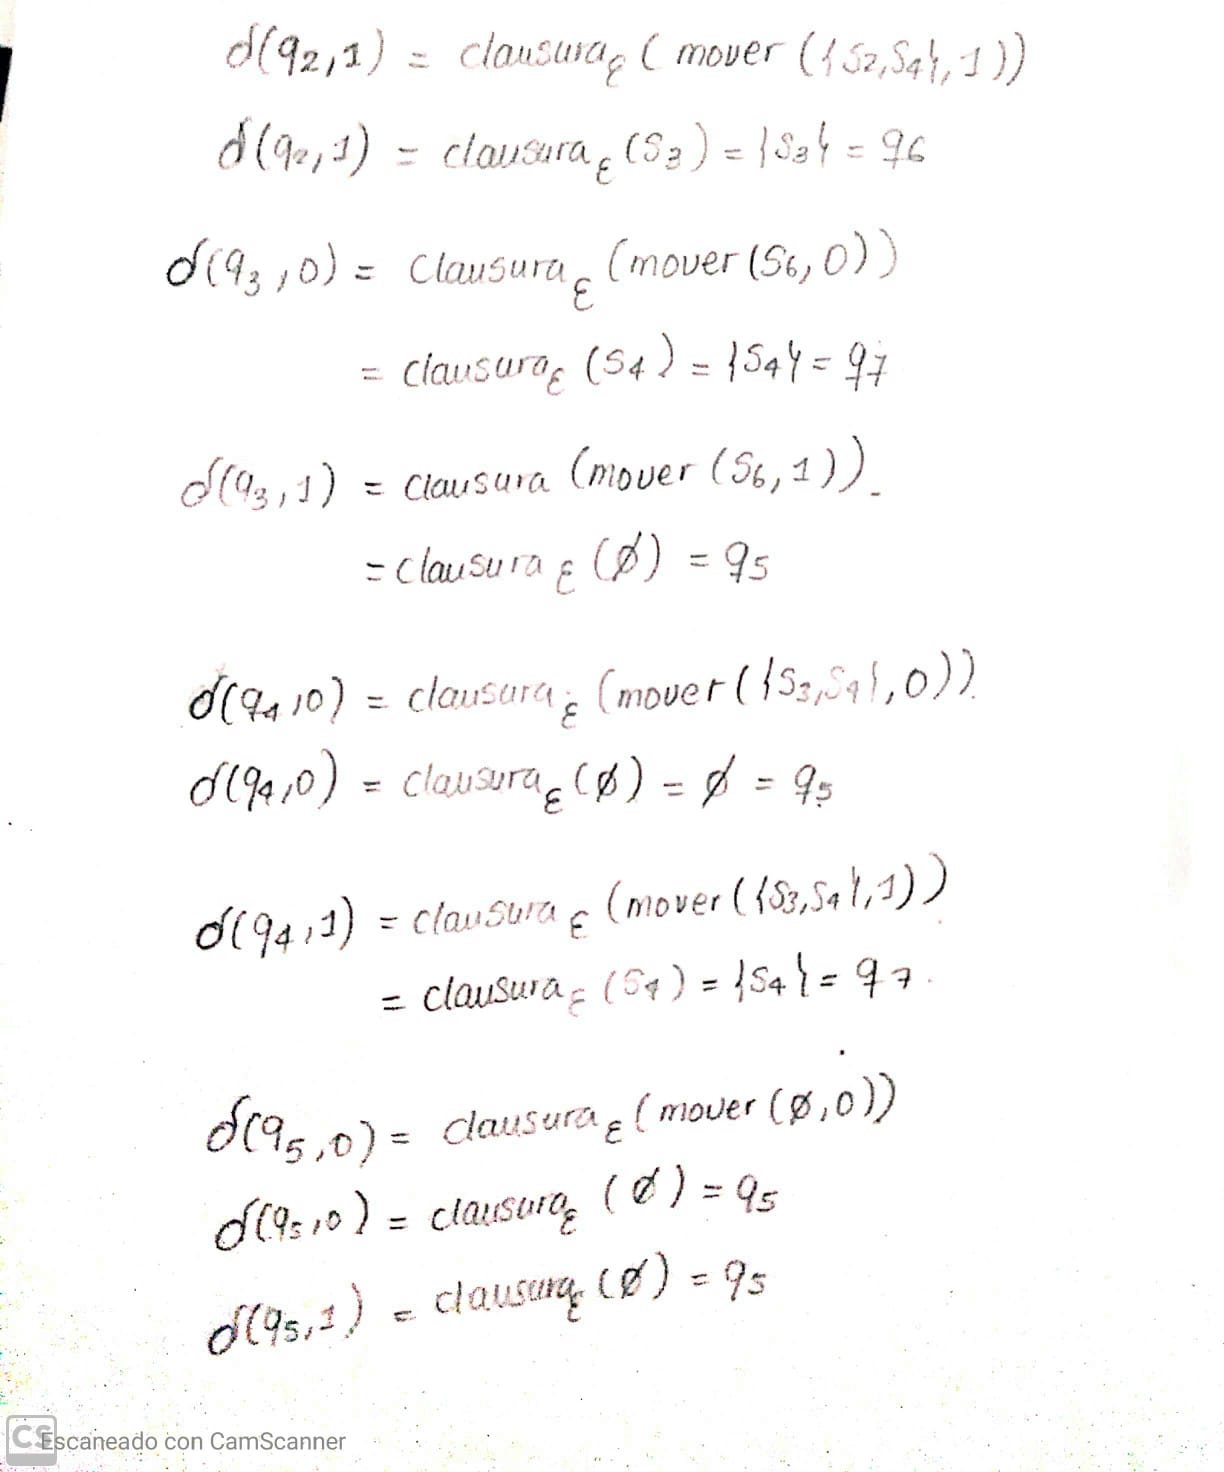 δ(q2,1) = clausura ε ( mover ({S2,S4},1))
δ(q2,1) = clausura ε (S3) = {S3} = q6
δ(q3,0) = Clausura ε (mover (S6,0))
= clausura ε (S4) = {S4} = q7
δ(q3,1) = clausura (mover (S6,1)).
= clausura ε (∅) = q5
δ(q4,0) = clausura ε (mover ({S3,S4},0)).
δ(q4,0) = clausura ε (∅) = ∅ = q5
δ(q4,1) = clausura ε (mover ({S3,S4},1))
= clausura ε (S4) = {S4} = q7.
δ(q5,0) = clausura ε (mover (∅,0))
δ(q5,0) = clausura ε (∅) = q5
δ(q5,1) = clausura ε (∅) = q5
CS Escaneado con CamScanner